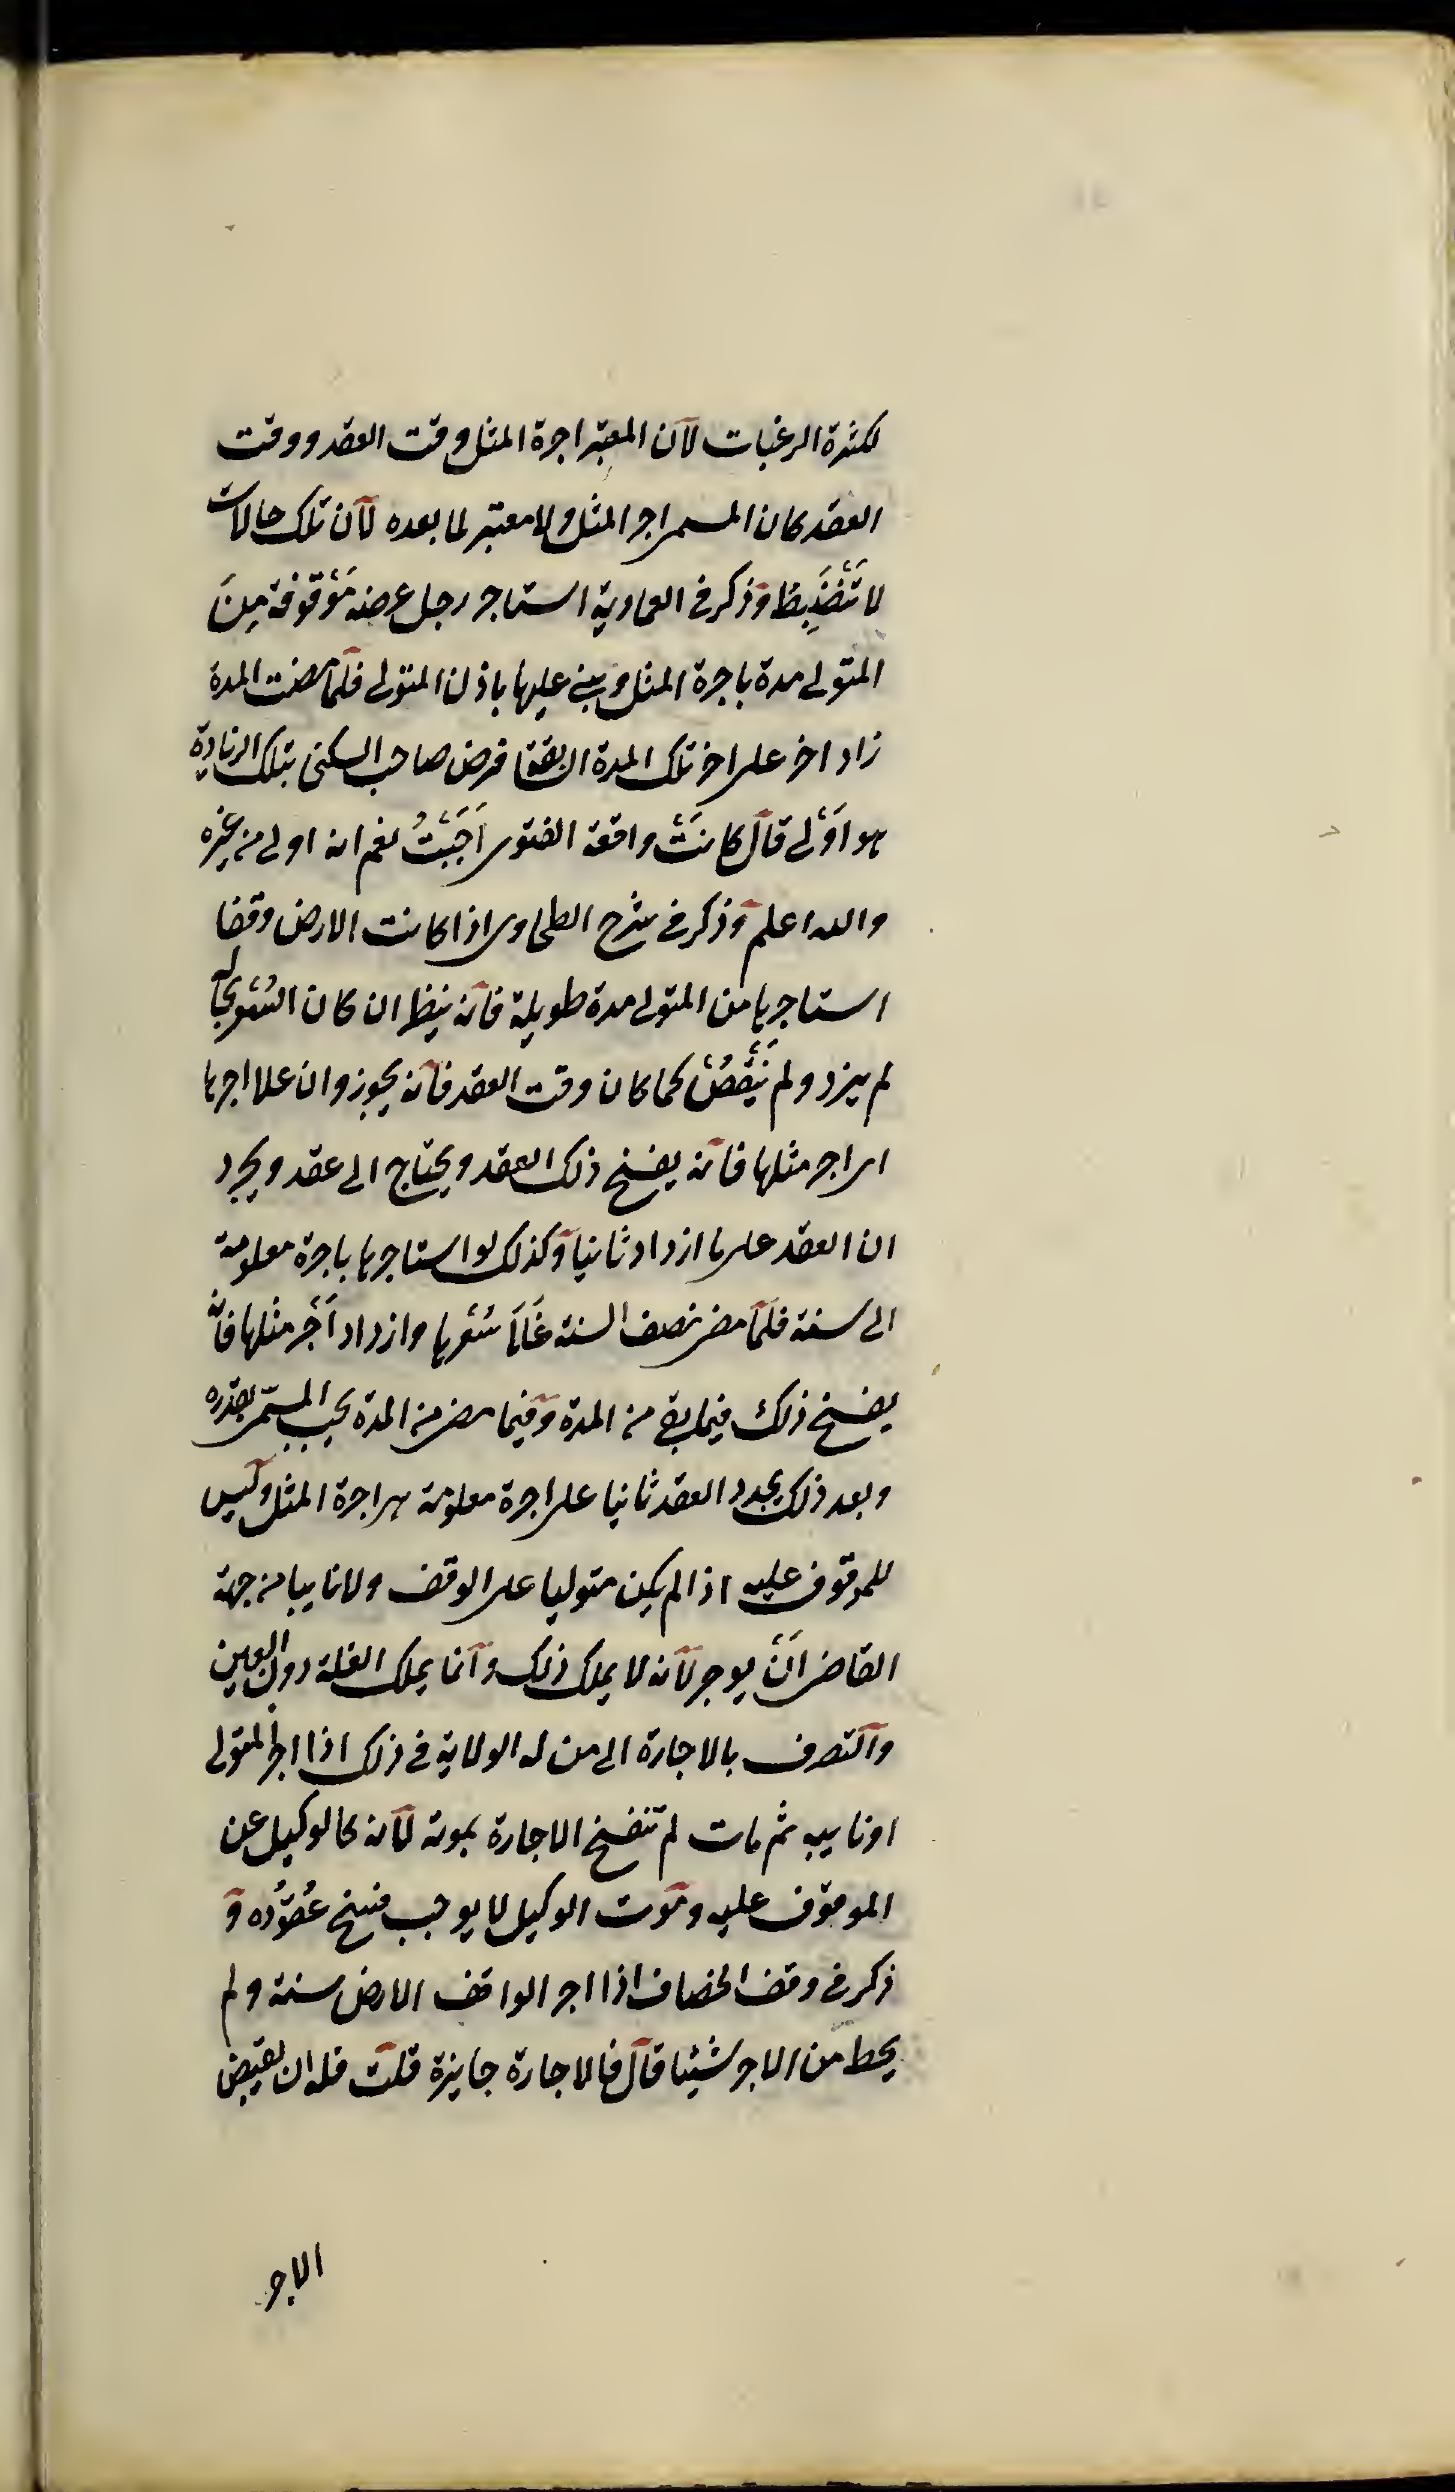 لكثرة الرغبات لآن المعتبر اجرة المثل وقت العقد ووقت
العقد كان المسمى اجر المثل ولا معتبر لما بعده لآن تلك حالات
لا تَنْضَبِط وذكر فى العمادية استاجر رجل عرصة مَوْقوفة مِنَ
المتولى مدة باجرة المثل وبنى عليها باذن المتولى فلمآ مضت المدة
زاد اخر على اخر تلك المدة ان بقفا فرض صاحب السكنى بتلك الزيادة
هو اوْلى قآل كانَتْ واقعة الفتوى اَجَبْتُ نعم انه اولى من غيره
والله اعلم وذكر فى شرح الطحاوى اذا كانت الارض وقفا
استاجرها من المتولى مدة طويلة فآنه ينظر ان كان السْعر بحاله
لم يزد ولم يَنْقُصْ كما كان وقت العقد فآنه يجوز وان علا اجرها
اى اجر مثلها فآنه يفسخ ذلك العقد ويحتاج الى عقد ويجرد
ان العقد على ما ازداد ثانيا وكذلك لو استاجرها باجرة معلومة
الى سنة فلمآ مضى نصف السنة غَلَا سْعْرها وازداد اَجْر مثلها فآنه
يفسخ ذلك فيما بقى من المدة وفيما مضى من المدة يجب المسمّى بقدره
وبعد ذلك يجدد العقد ثانيا على اجرة معلومة هى اجرة المثل وليس
للموقوف عليه اذا لم يكن متوليا على الوقف ولا نايبا من جهة
القاضى اَنْ يوجر لآنه لا يملك ذلك وآنما يملك الغلة دون العين
وآلتصرف بالاجارة الى من له الولاية فى ذلك اذا اجر المتولى
او نايبه ثم مات لم تنفسخ الاجارة بموته لآنه كالوكيل عن
الموقوف عليه وموت الوكيل لا يوجب فسخ عُقوُده و
ذكر فى وقف الخصاف اذا اجر الواقف الارض سنة ولم
يحط من الاجر شيئا قآل فالاجارة جايزة قلت فله ان يقبض
الاجر